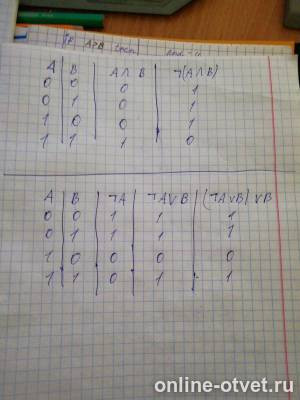 A B A ∧ B ¬(A ∧ B)
0 0 0 1
0 1 0 1
1 0 0 1
1 1 1 0
A B ¬A ¬A∨B (¬A∨B)∨B
0 0 1 1 1
0 1 1 1 1
1 0 0 0 0
1 1 0 1 1
online-otvet.ru